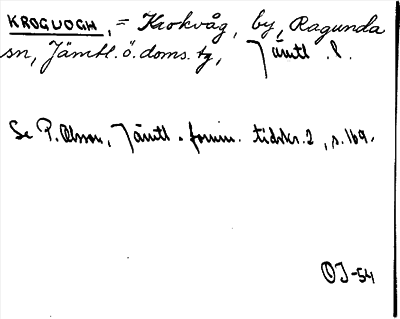 KROGUOGH, = Krokvåg, by, Ragunda
sn, Jämtl. ö. doms. tg, Jämtl. l.
Se P. Olsson, Jämtl. fornm. tidskr. 2, s. 169.
OJ-54